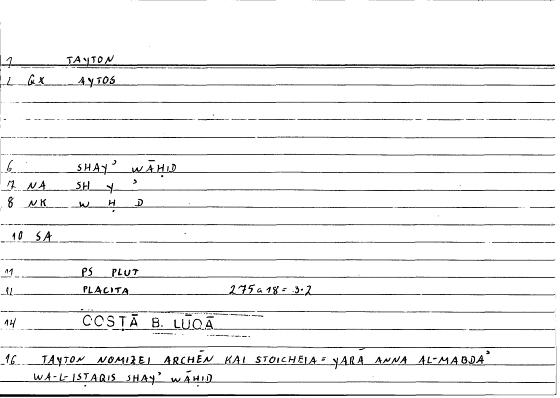 1 TAYTON
2 GX AYTOS
6 SHAYʾ WĀḤID
7 NA SH Y ʾ
8 NK W Ḥ D
10 SA
11 PS PLUT
12 PLACITA 275a18 = 3.2
14 COSṬĀ B. LŪQĀ
16 TAYTON NOMIZEI ARCHĒN KAI STOICHEIA = YARĀ ANNA AL-MABDAʾ
WA-L-ISṬAQIS SHAYʾ WĀḤID